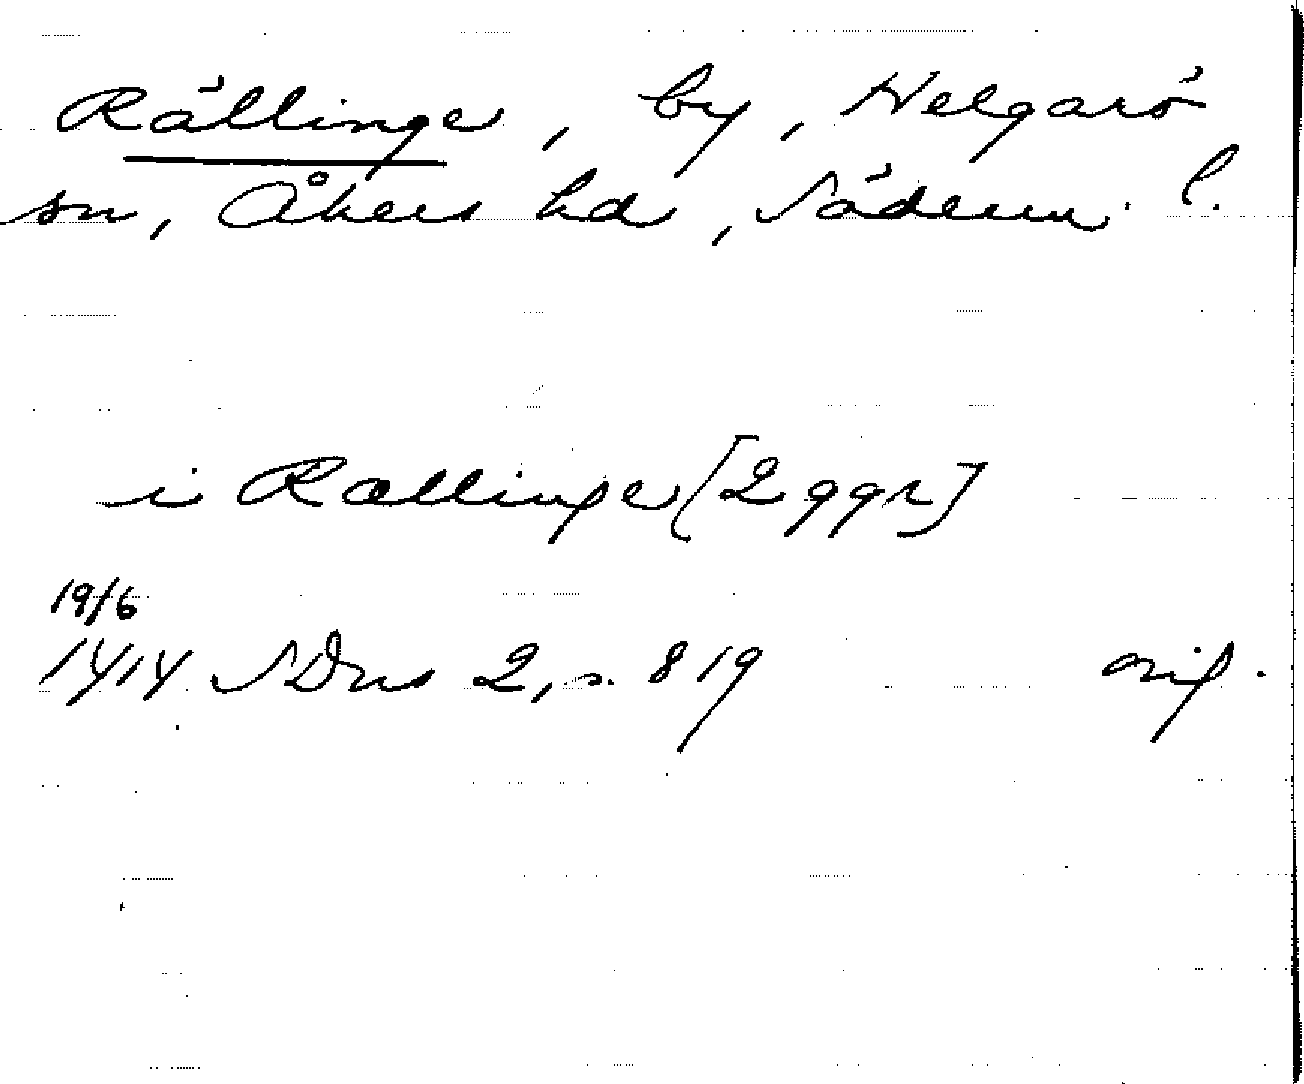 Rällinge, by, Helgarö
sn, Åkers hd, Söderm. l.
i Rællinge [2 ggr]
19/6
1414 SDns 2, s. 819 orig.